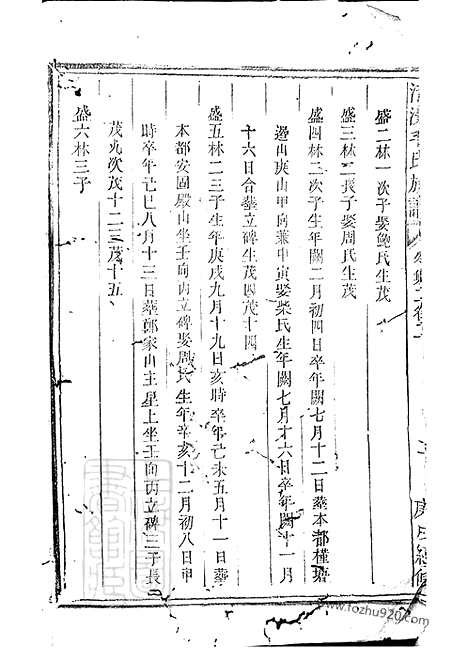 李氏族譜
庚戌續修
盛二林一次子娶鮑氏生茂
盛三林二長子娶周氏生茂
盛四林二次子生年闕二月初四日卒年闕七月十二日葬本都槿塘
邊山庚山甲向兼申寅娶柴氏生年闕七月才六日卒年闕十一月
十六日合葬立碑生茂四茂十四
盛五林二三子生年庚戌九月十九日亥時卒年己未五月十一日葬
本都安固殿山坐壬向丙立碑娶周氏生年辛亥十二月初八日申
時卒年己巳八月十三日葬鄭家山主星上坐壬向丙立碑三子長
茂九次茂十二三茂十五
盛六林三子
www.fozhu920.com